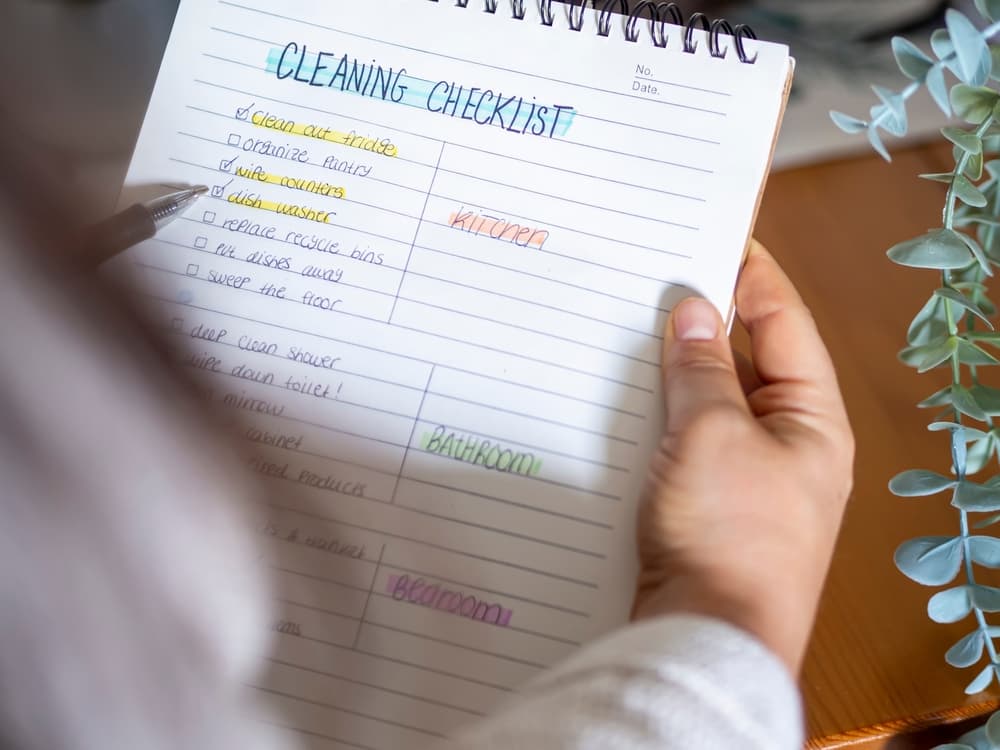 No.
Date.
CLEANING CHECKLIST
clean out fridge
organize pantry
wipe counters
dish washer
replace recycle bins
put dishes away
sweep the floor
KITCHEN
deep clean shower
wipe down toilet!
mirrow
cabinet
products
BATHROOM
&
BEDROOM